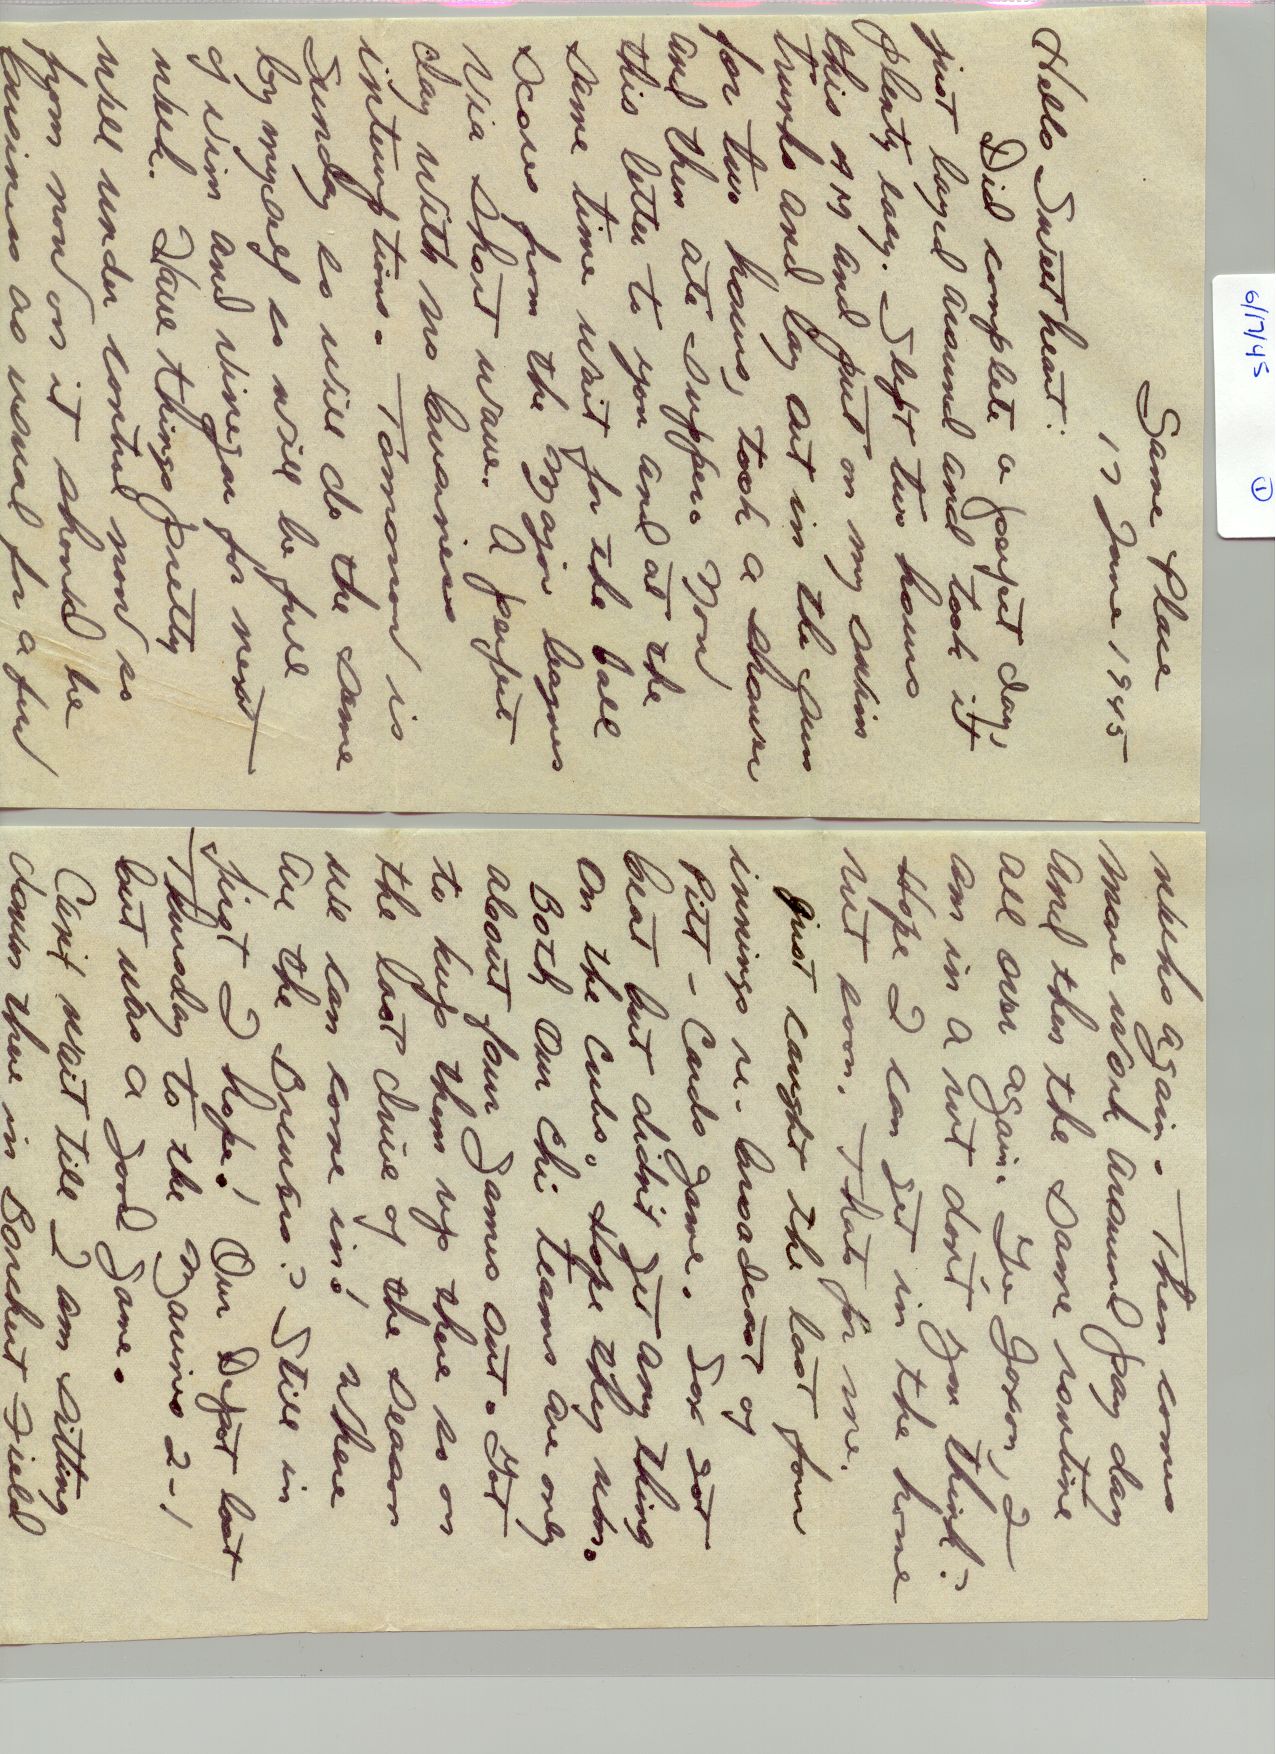 6/17/45 ①
Same Place
17 June 1945
Hello Sweetheart:
Did complete a perfect day,
just layed around and took it
plenty easy. Slept two hours
this A.M. and put on my swim
trunks and lay out in the sun
for two hours, took a shower
and then ate supper. Now
this letter to you and at the
same time wait for the ball
scores from the Major leagues
via short wave. A perfect
day with no business
interuptions. Tomorrow is
Sunday so will do the same
by myself so will be full
of vim and vinegar for next
week. Have things pretty
well under control now so
from now on it should be
business as usual for a few
weeks again. Then comes
more work around pay day
and then the same routine
all over again. I'm
am in a rut don't you think?
Hope I can get in the home
rut soon. That's for me.
Just caught the last four
innings re-broadcast of
Pitt-Cards game. Sox got
beat but didn't get any thing
on the Cubs. Hope they won.
Both our Chi teams are only
about four games out. Got
to keep them up there so on
the last drive of the season
we can come in! Where
are the Brewers? Still in
first I hope! Our Depot lost
Thursday to the Marines 2-1
but was a good game.
Can't wait till I am sitting
down there in Borchert Field